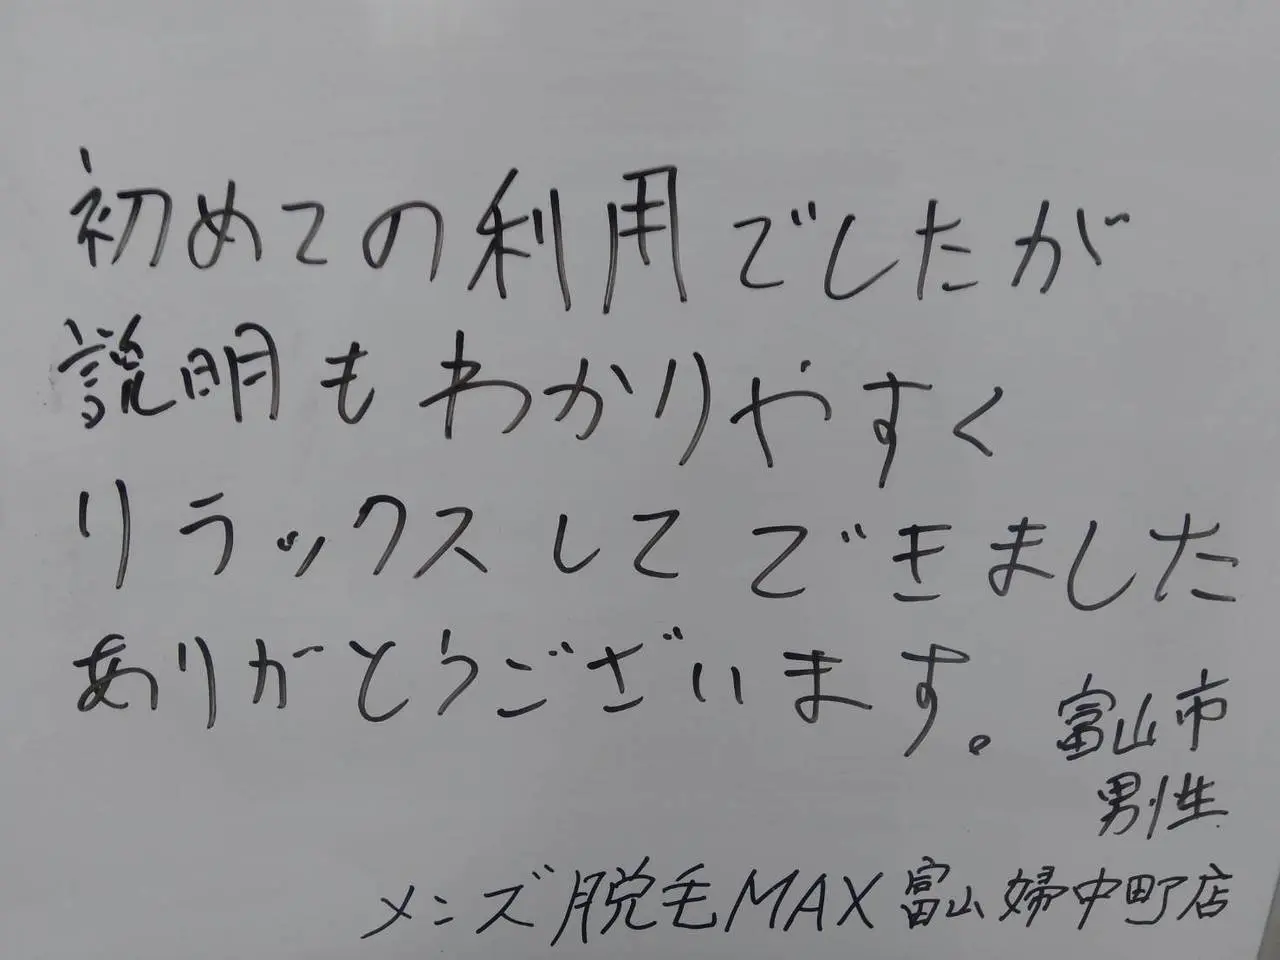 初めての利用でしたが
説明もわかりやすく
リラックスしてできました
ありがとうございます。
富山市
男性
メンズ脱毛MAX富山婦中町店